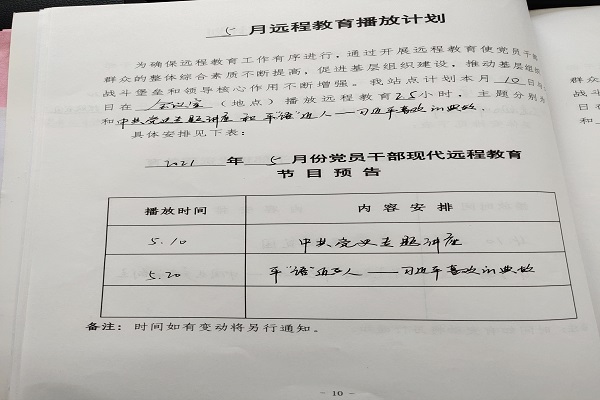 5 月远程教育播放计划
为确保远程教育工作有序进行，通过开展远程教育使党员干部
群众的整体综合素质不断提高，促进基层组织建设，推动基层组织
战斗堡垒和领导核心作用不断增强。我站点计划本月 10 日与
日在 会议室 （地点）播放远程教育 2.5 小时，主题分别为
和 中共党史主题讲座 和 平"语"近人——习近平喜欢的典故.
具体安排见下表：
2021 年 5 月份党员干部现代远程教育
节目预告
播放时间 内容安排
5.10 中共党史主题讲座
5.20 平"语"近人——习近平喜欢的典故
备注：时间如有变动将另行通知。
- 10 -